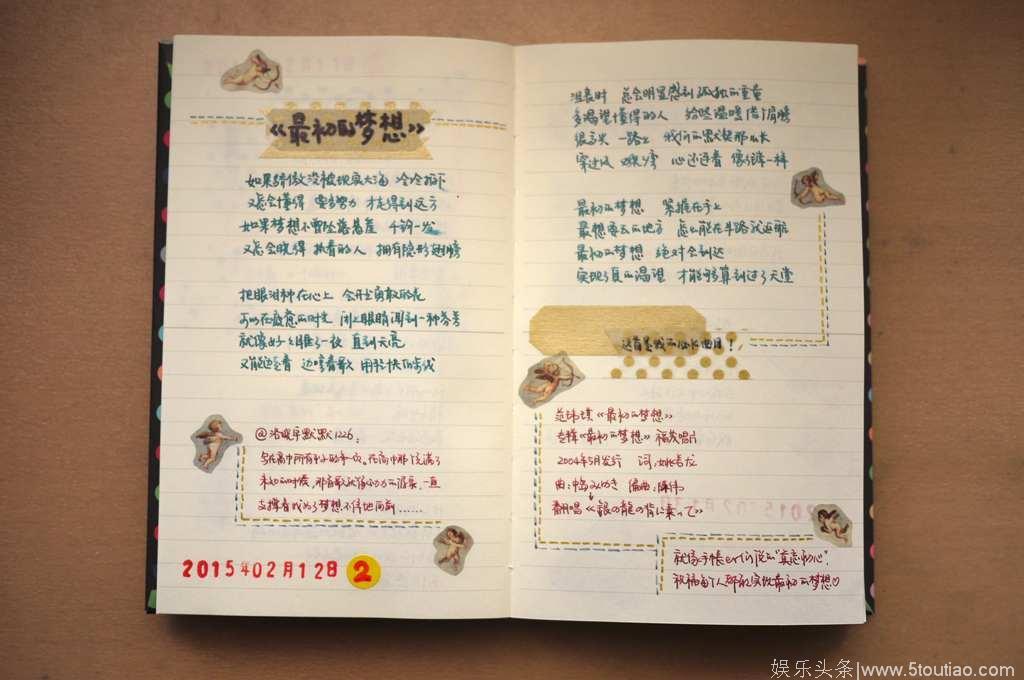 《最初的梦想》
如果骄傲没被现实大海 冷冷拍下
又怎会懂得 要多努力 才走得到远方
如果梦想不曾坠落悬崖 千钧一发
又怎会晓得 执着的人 拥有隐形翅膀
把眼泪种在心上 会开出勇敢的花
可以在疲惫的时光 闭上眼睛闻到一种芬芳
就像好好睡了一夜 直到天亮
又能边走着 边哼着歌 用轻快的步伐
默默1226：
支撑着我为了梦想不停地向前......
2015年02月12日 2
沮丧时 总会明显感到孤独的重量
多渴望懂得的人 给些温暖借个肩膀
很高兴 一路上 我们的默契那么长
穿过风 又绕个弯 心还连着 像往常一样
最初的梦想 紧握在手上
最想要去的地方 怎么能在半路就返航
最初的梦想 绝对会到达
实现了真的渴望 才能够算到过了天堂
这首是我的成长曲目！
范玮琪《最初的梦想》
专辑《最初的梦想》福茂唱片
2004年5月发行 词：姚若龙
曲：中島みゆき 编曲：陈伟
翻唱《銀の龍の背に乗って》
就像手帐 们说的“莫忘初心”
祝福每个人都能实现最初的梦想♡
娱乐头条|www.5toutiao.com